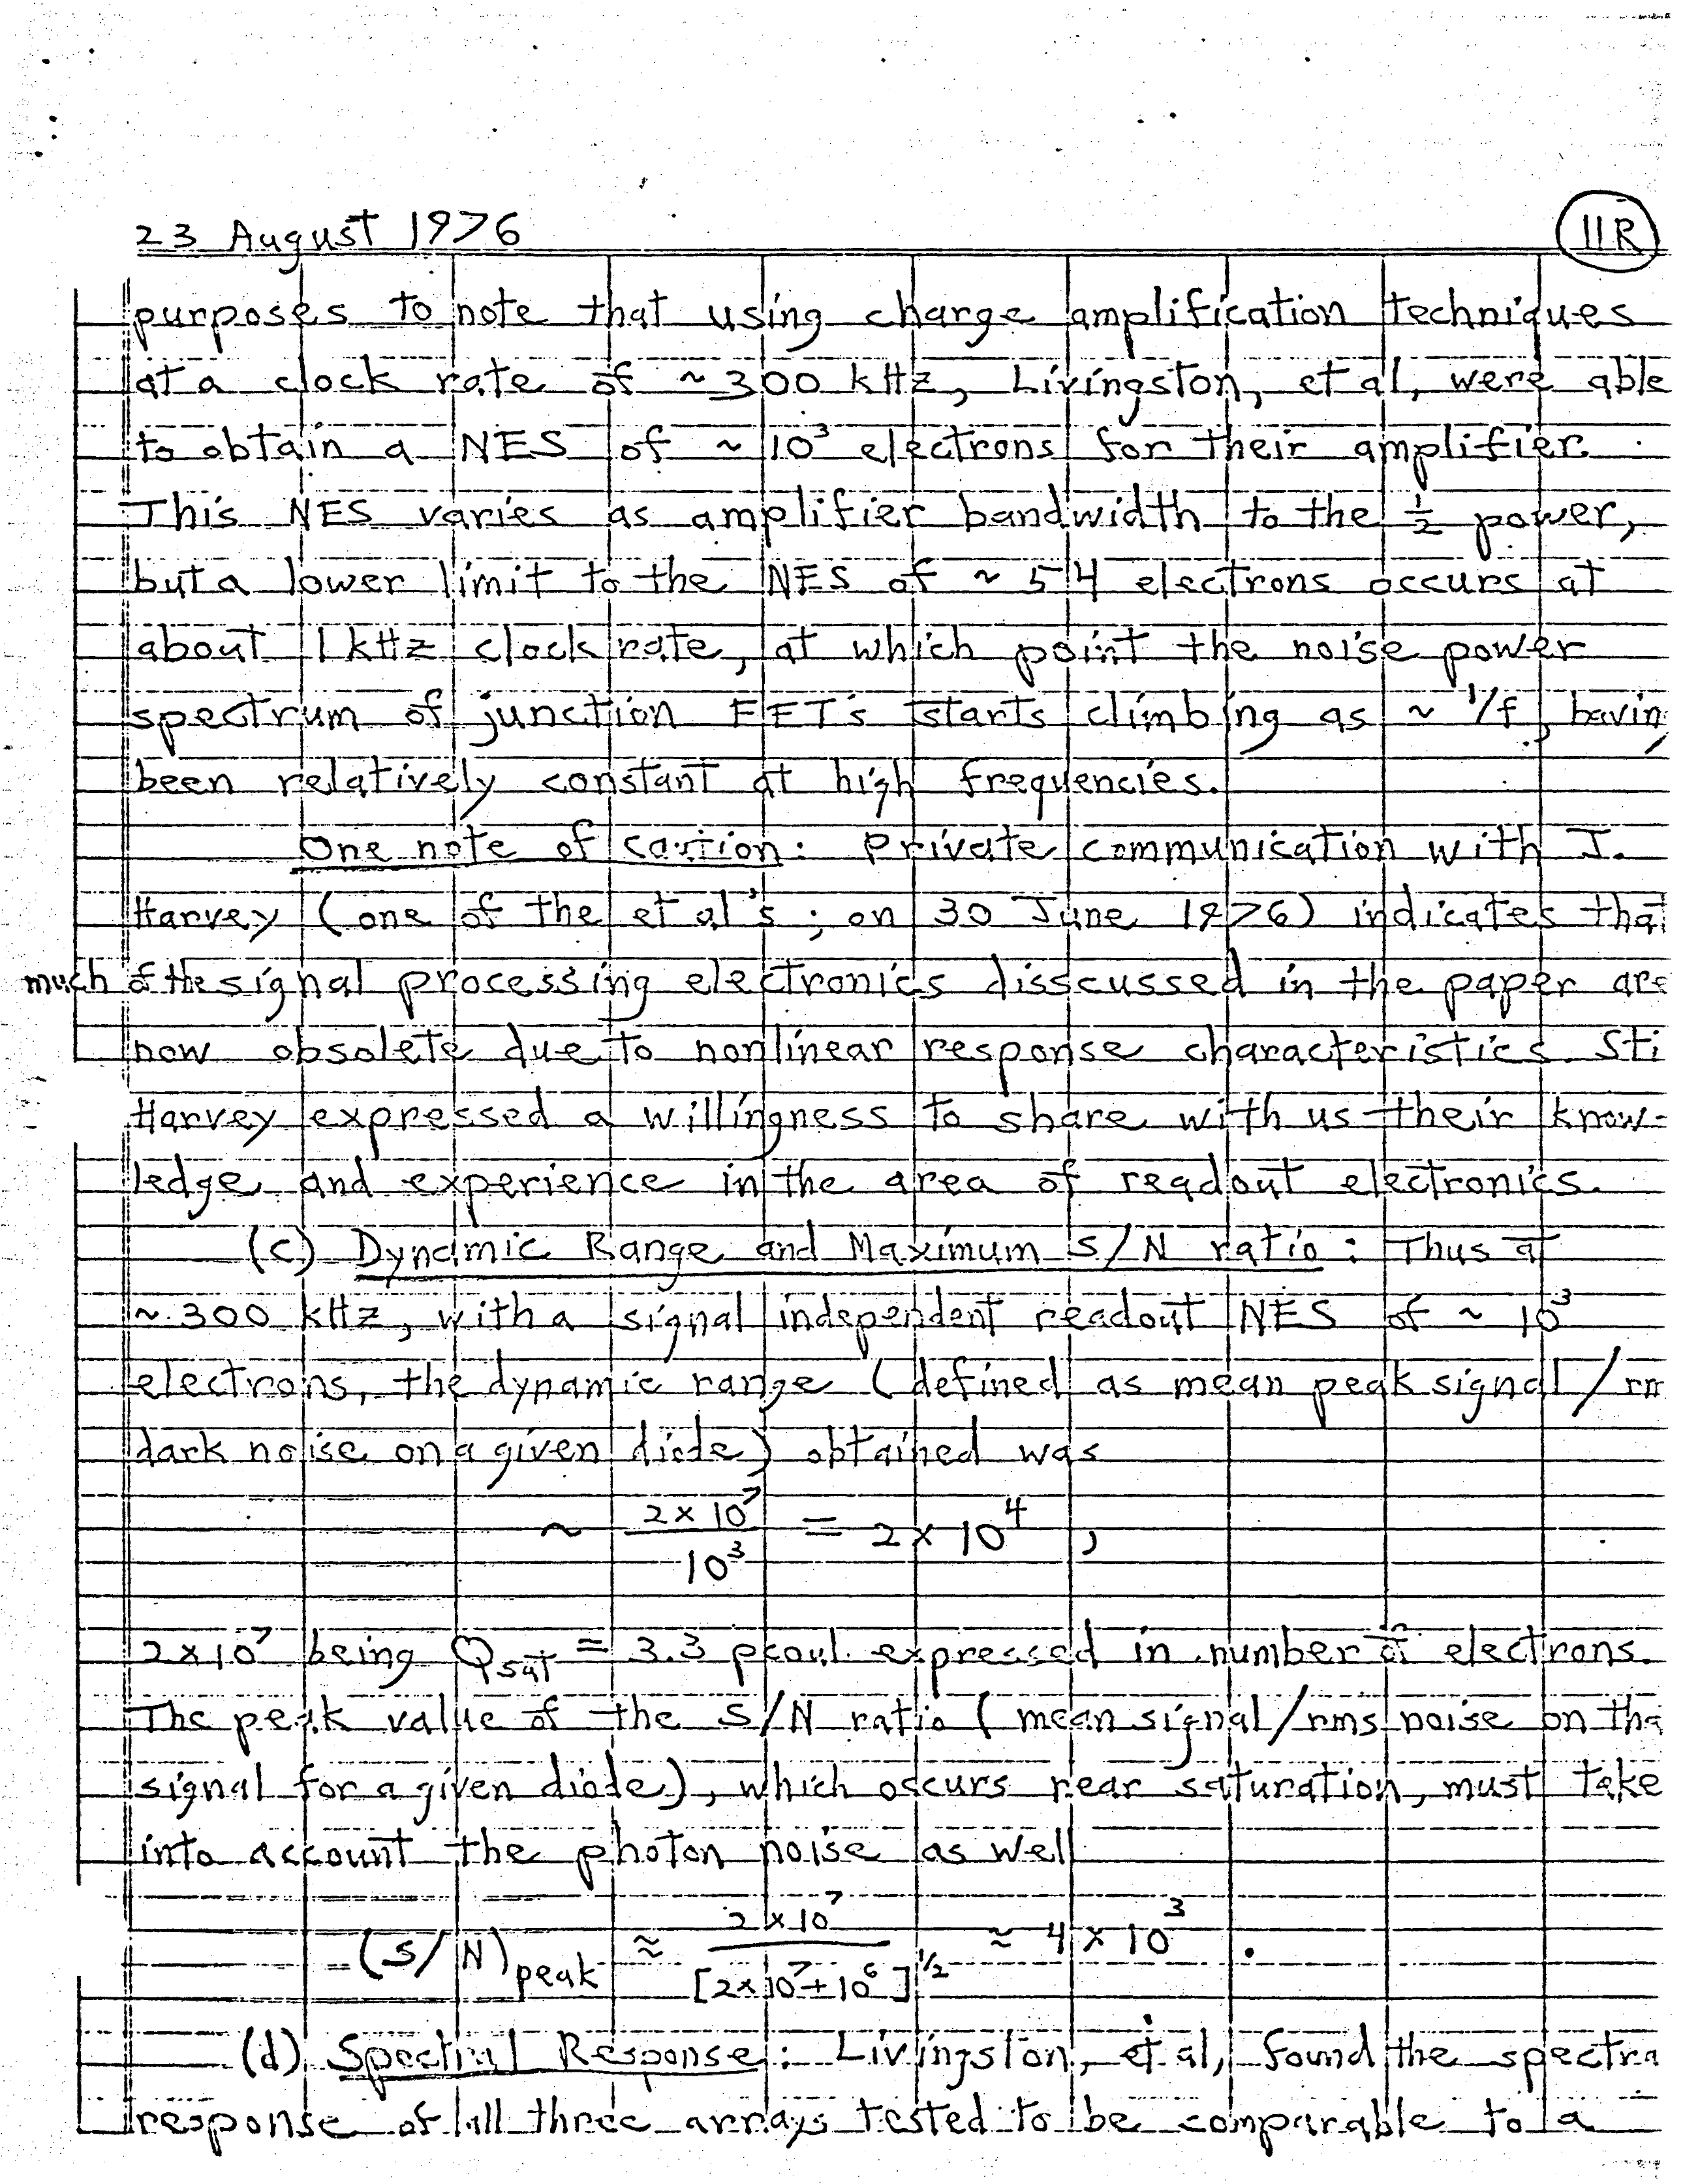 23 August 1976
11R
purposes to note that using charge amplification techniques
at a clock rate of ~300 kHz, Livingston, et al, were able
to obtain a NES of ~ 10³ electrons for their amplifier.
This NES varies as amplifier bandwidth to the ½ power,
but a lower limit to the NES of ~ 54 electrons occurs at
about 1 kHz clock rate, at which point the noise power
spectrum of junction FET's starts climbing as ~ 1/f, havin
been relatively constant at high frequencies.
One note of caution: Private communication with J.
Harvey (one of the et al's; on 30 June 1976) indicates that
much of the signal processing electronics disscussed in the paper are
now obsolete due to nonlinear response characteristics. Sti
Harvey expressed a willingness to share with us their know-
ledge and experience in the area of readout electronics.
(c) Dynamic Range and Maximum S/N ratio: Thus at
~300 kHz, with a signal independent readout NES of ~ 10³
electrons, the dynamic range (defined as mean peak signal / rm
dark noise on a given diode) obtained was
~ 2 x 10⁷ / 10³ = 2 x 10⁴ ,
2x10⁷ being Qsat = 3.3 pcoul. expressed in number of electrons.
The peak value of the S/N ratio (mean signal/rms noise on tha
signal for a given diode), which occurs near saturation, must take
into account the photon noise as well
(S/N)peak ≈ 2 x 10⁷ / [2x10⁷+10⁶]^½ ≈ 4 x 10³ .
(d) Spectral Response: Livingston, et al, found the spectra
response of all three arrays tested to be comparable to a